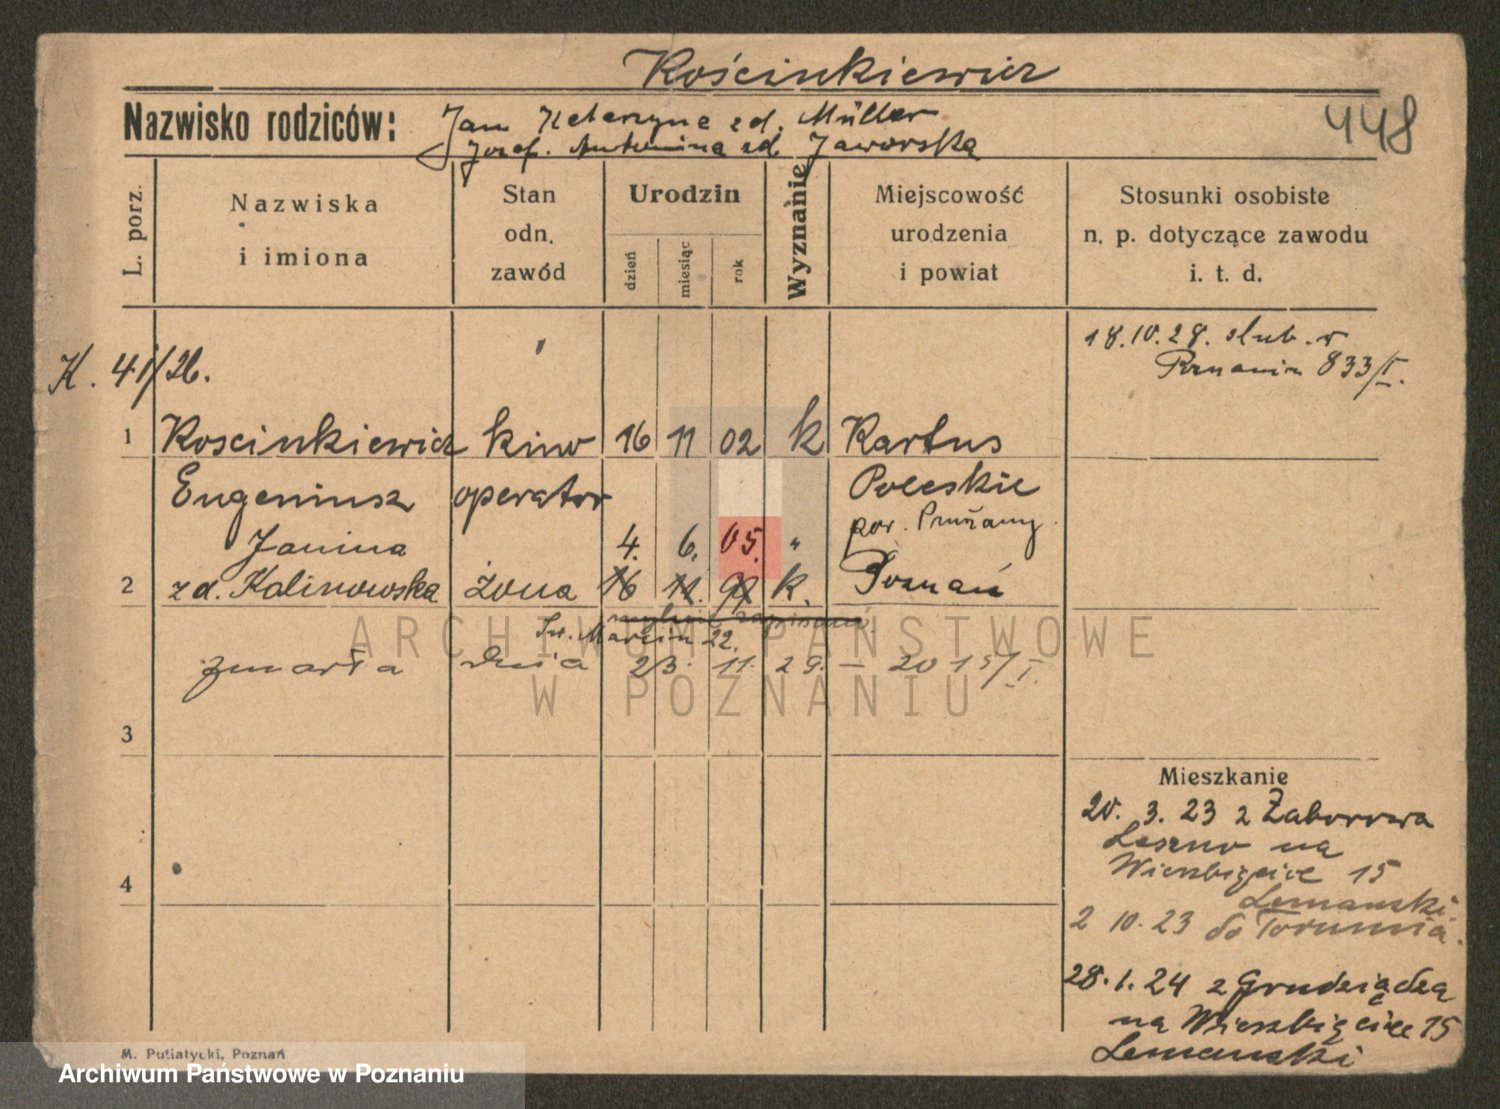 Kościnkiewicz
Nazwisko rodziców:
Jan Katarzyna zd. Müller
Józef. Antonina zd Jaworska
448
L. porz.
Nazwiska
i imiona
Stan
odn.
zawód
Urodzin
dzień
miesiąc
rok
Wyznanie
Miejscowość
urodzenia
i powiat
Stosunki osobiste
n. p. dotyczące zawodu
i. t. d.
18.10.28. slub. w
Poznaniu 833/I.
K. 41/26.
1 Koscinkiewicz kino 16 11 02 k Kartus
Eugeniusz operator Poleskie
pow. Prużany.
Janina 4. 6. 05. "
2 zd. Kalinowska żona 16 11. k. Poznań
mylnie zapisano.
Św. Marcin 22.
zmarła dnia 23. 11. 29. – 2015/I.
3
4
Mieszkanie
20. 3. 23 z Zaborowa
Leszno na
Wierzbięcice 15
Lemanski
2 10. 23 do Torunia.
28. 1. 24 z Grudziądza
na Wierzbięcice 15
Lemanski
M. Putiatycki, Poznań
ARCHIWUM PAŃSTWOWE
W POZNANIU
Archiwum Państwowe w Poznaniu